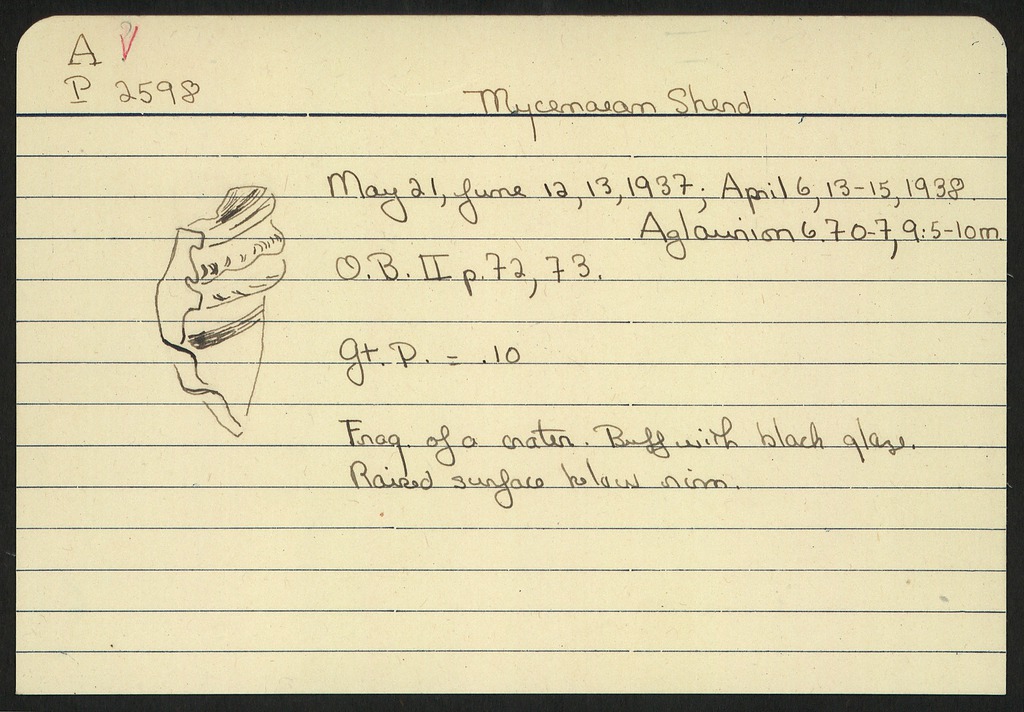 A
P 2598
Mycenaean Sherd
May 21, June 12, 13, 1937; April 6, 13-15, 1938
Aglaurion 6.70-7, 9:5-10m.
O.B. II p. 72, 73.
Gt. P. = .10
Frag. of a crater. Buff with black glaze.
Raised surface below rim.